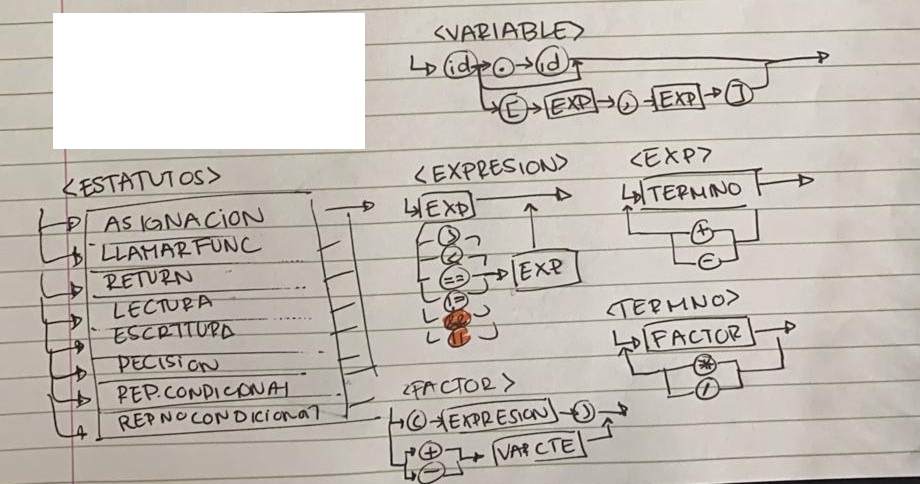 <VARIABLE>
id . id
[ EXP , EXP ]
<ESTATUTOS>
ASIGNACION
LLAMARFUNC
RETURN
LECTURA
ESCRITURA
DECISION
REP.CONDICIONAL
REPNOCONDICIONAL
<EXPRESION>
EXP
>
<
==
EXP
!=
&&
||
<EXP>
TERMINO
+
-
<TERMINO>
FACTOR
*
/
<FACTOR>
( EXPRESION )
+
-
VAR CTE